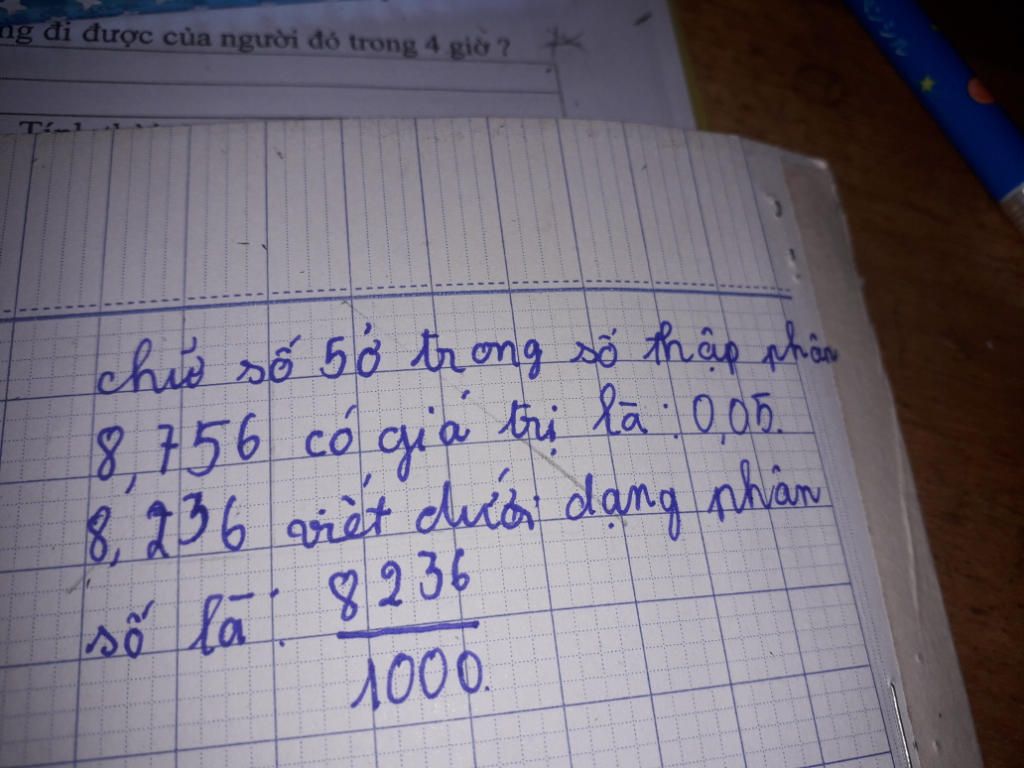 ng đi được của người đó trong 4 giờ ?
chữ số 5 ở trong số thập phân
8,756 có giá trị là: 0,05.
8,236 viết dưới dạng phân
số là: 8236
1000.